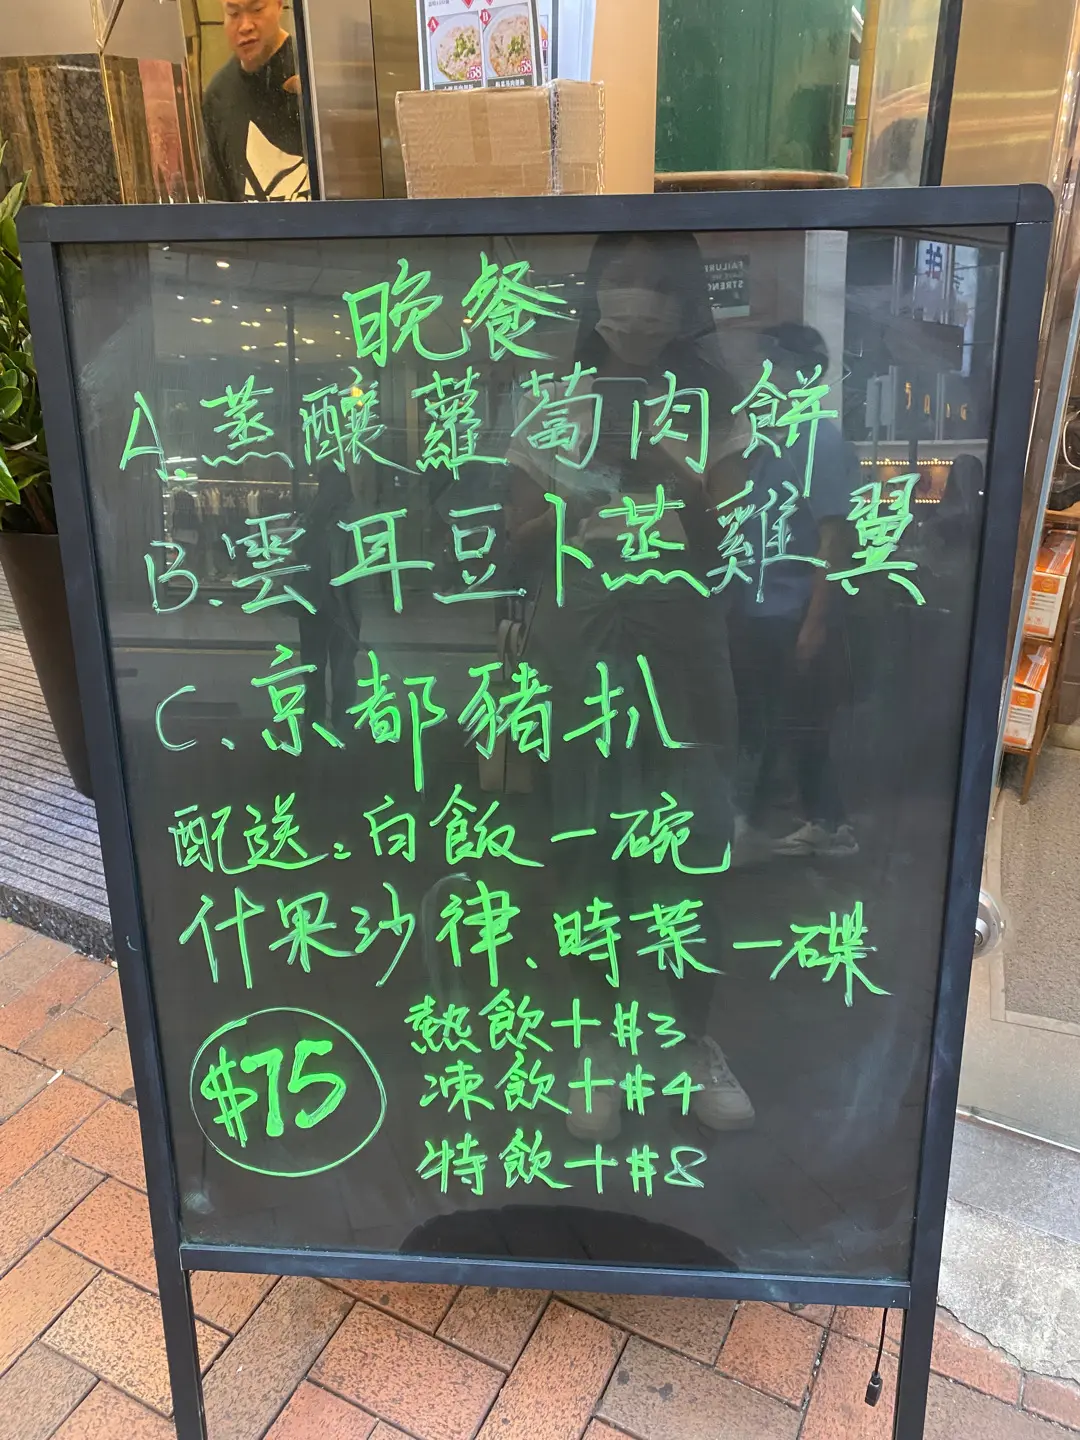 A
B
58
58
晚餐
A.蒸釀蘿蔔肉餅
B.雲耳豆卜蒸雞翼
C、京都豬扒
配送:白飯一碗
什果沙律、時菜一碟
$75
熱飲+$3
凍飲+$4
特飲+$8